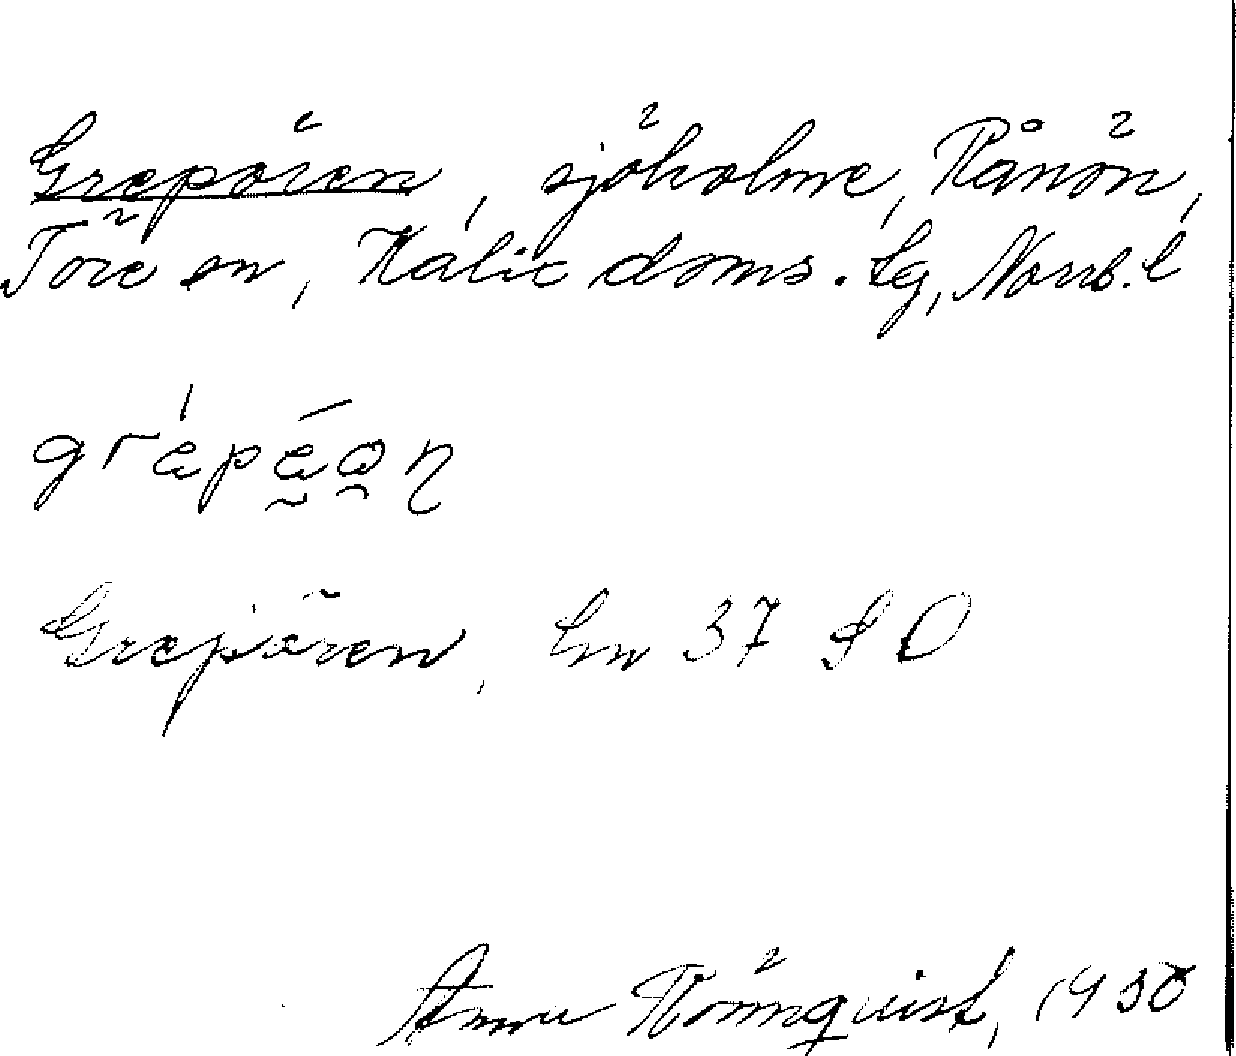 Grepören, sjöholme, Rånön,
Töre sn, Kalix doms. lg, Norrb. l
Grepören, bm 37 SO
Anna Rönnquist, 1930